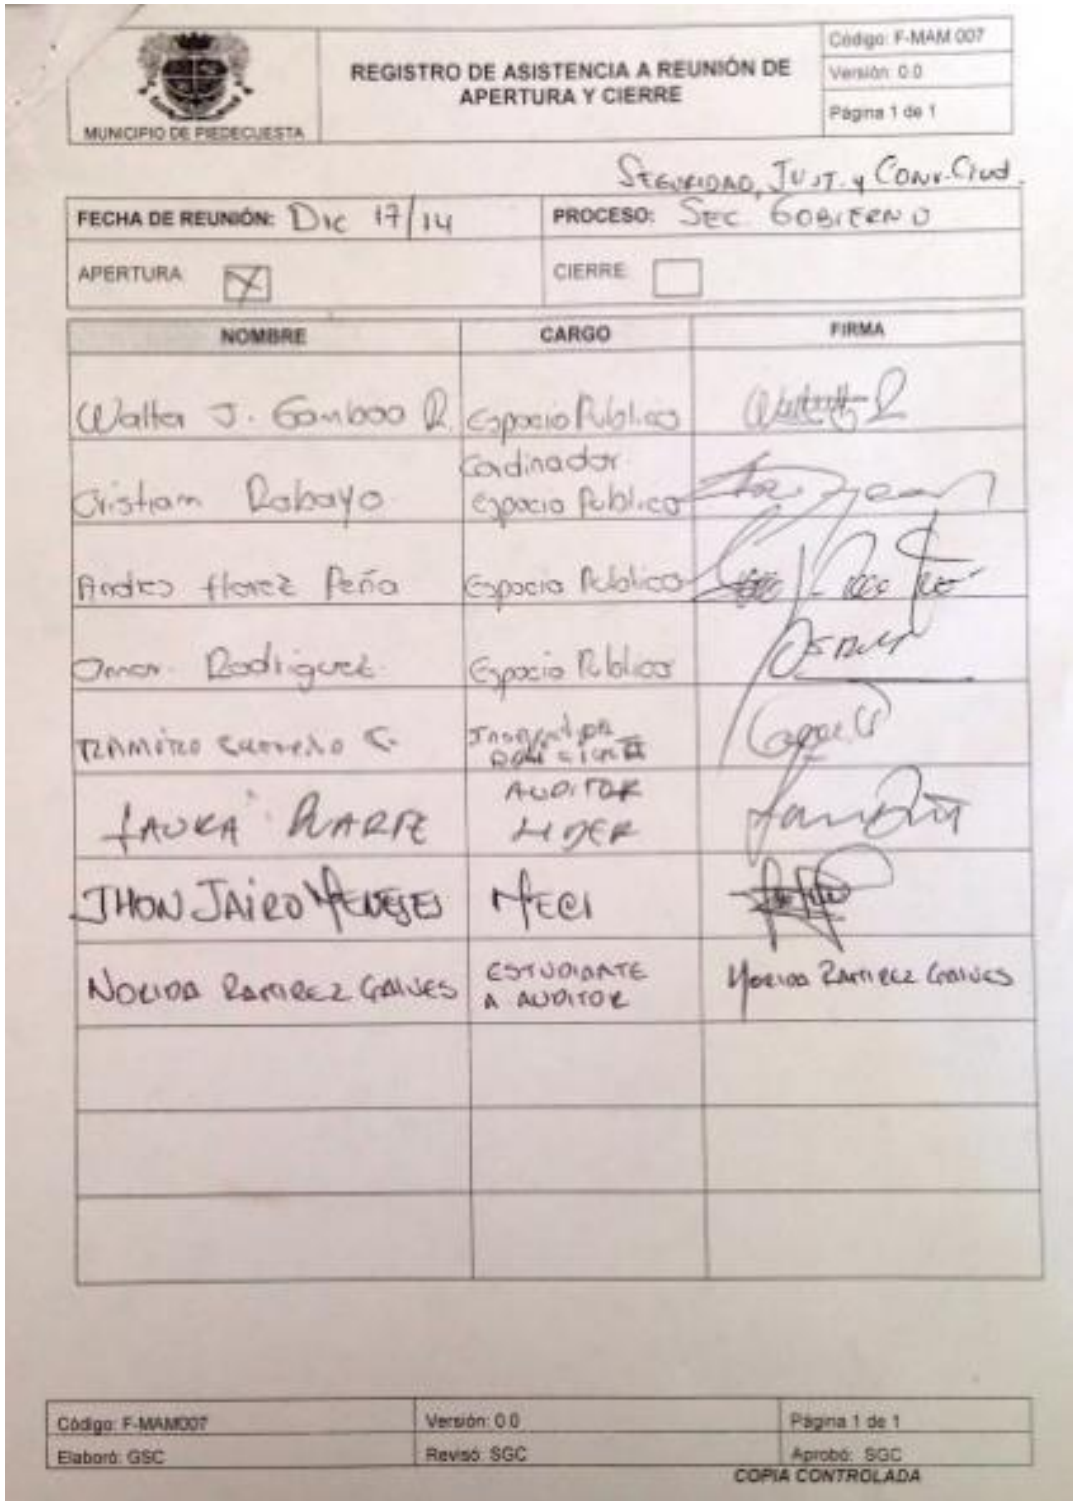 MUNICIPIO DE PIEDECUESTA
REGISTRO DE ASISTENCIA A REUNIÓN DE
APERTURA Y CIERRE
Código: F-MAM 007
Versión: 0.0
Página 1 de 1
SEGURIDAD, JUST. y CONV. Ciud.
FECHA DE REUNIÓN: Dic 17/14
PROCESO: SEC. GOBIERNO
APERTURA X
CIERRE
NOMBRE CARGO FIRMA
Walter J. Gamboa R. Espacio Publico
Cristiam Robayo Cordinador
Espacio Publico
Andres florez Peña Espacio Publico
Omar Rodriguez Espacio Publico
RAMIRO C.
LAURA DUARTE AUDITOR
LIDER
JHON JAIRO MENESES MECI
NORIDA RAMIREZ GALVES ESTUDIANTE
A AUDITOR
NORIDA RAMIREZ GALVES
Código: F-MAM007 Versión: 0.0 Página 1 de 1
Elaboró: GSC Revisó: SGC Aprobó: SGC
COPIA CONTROLADA